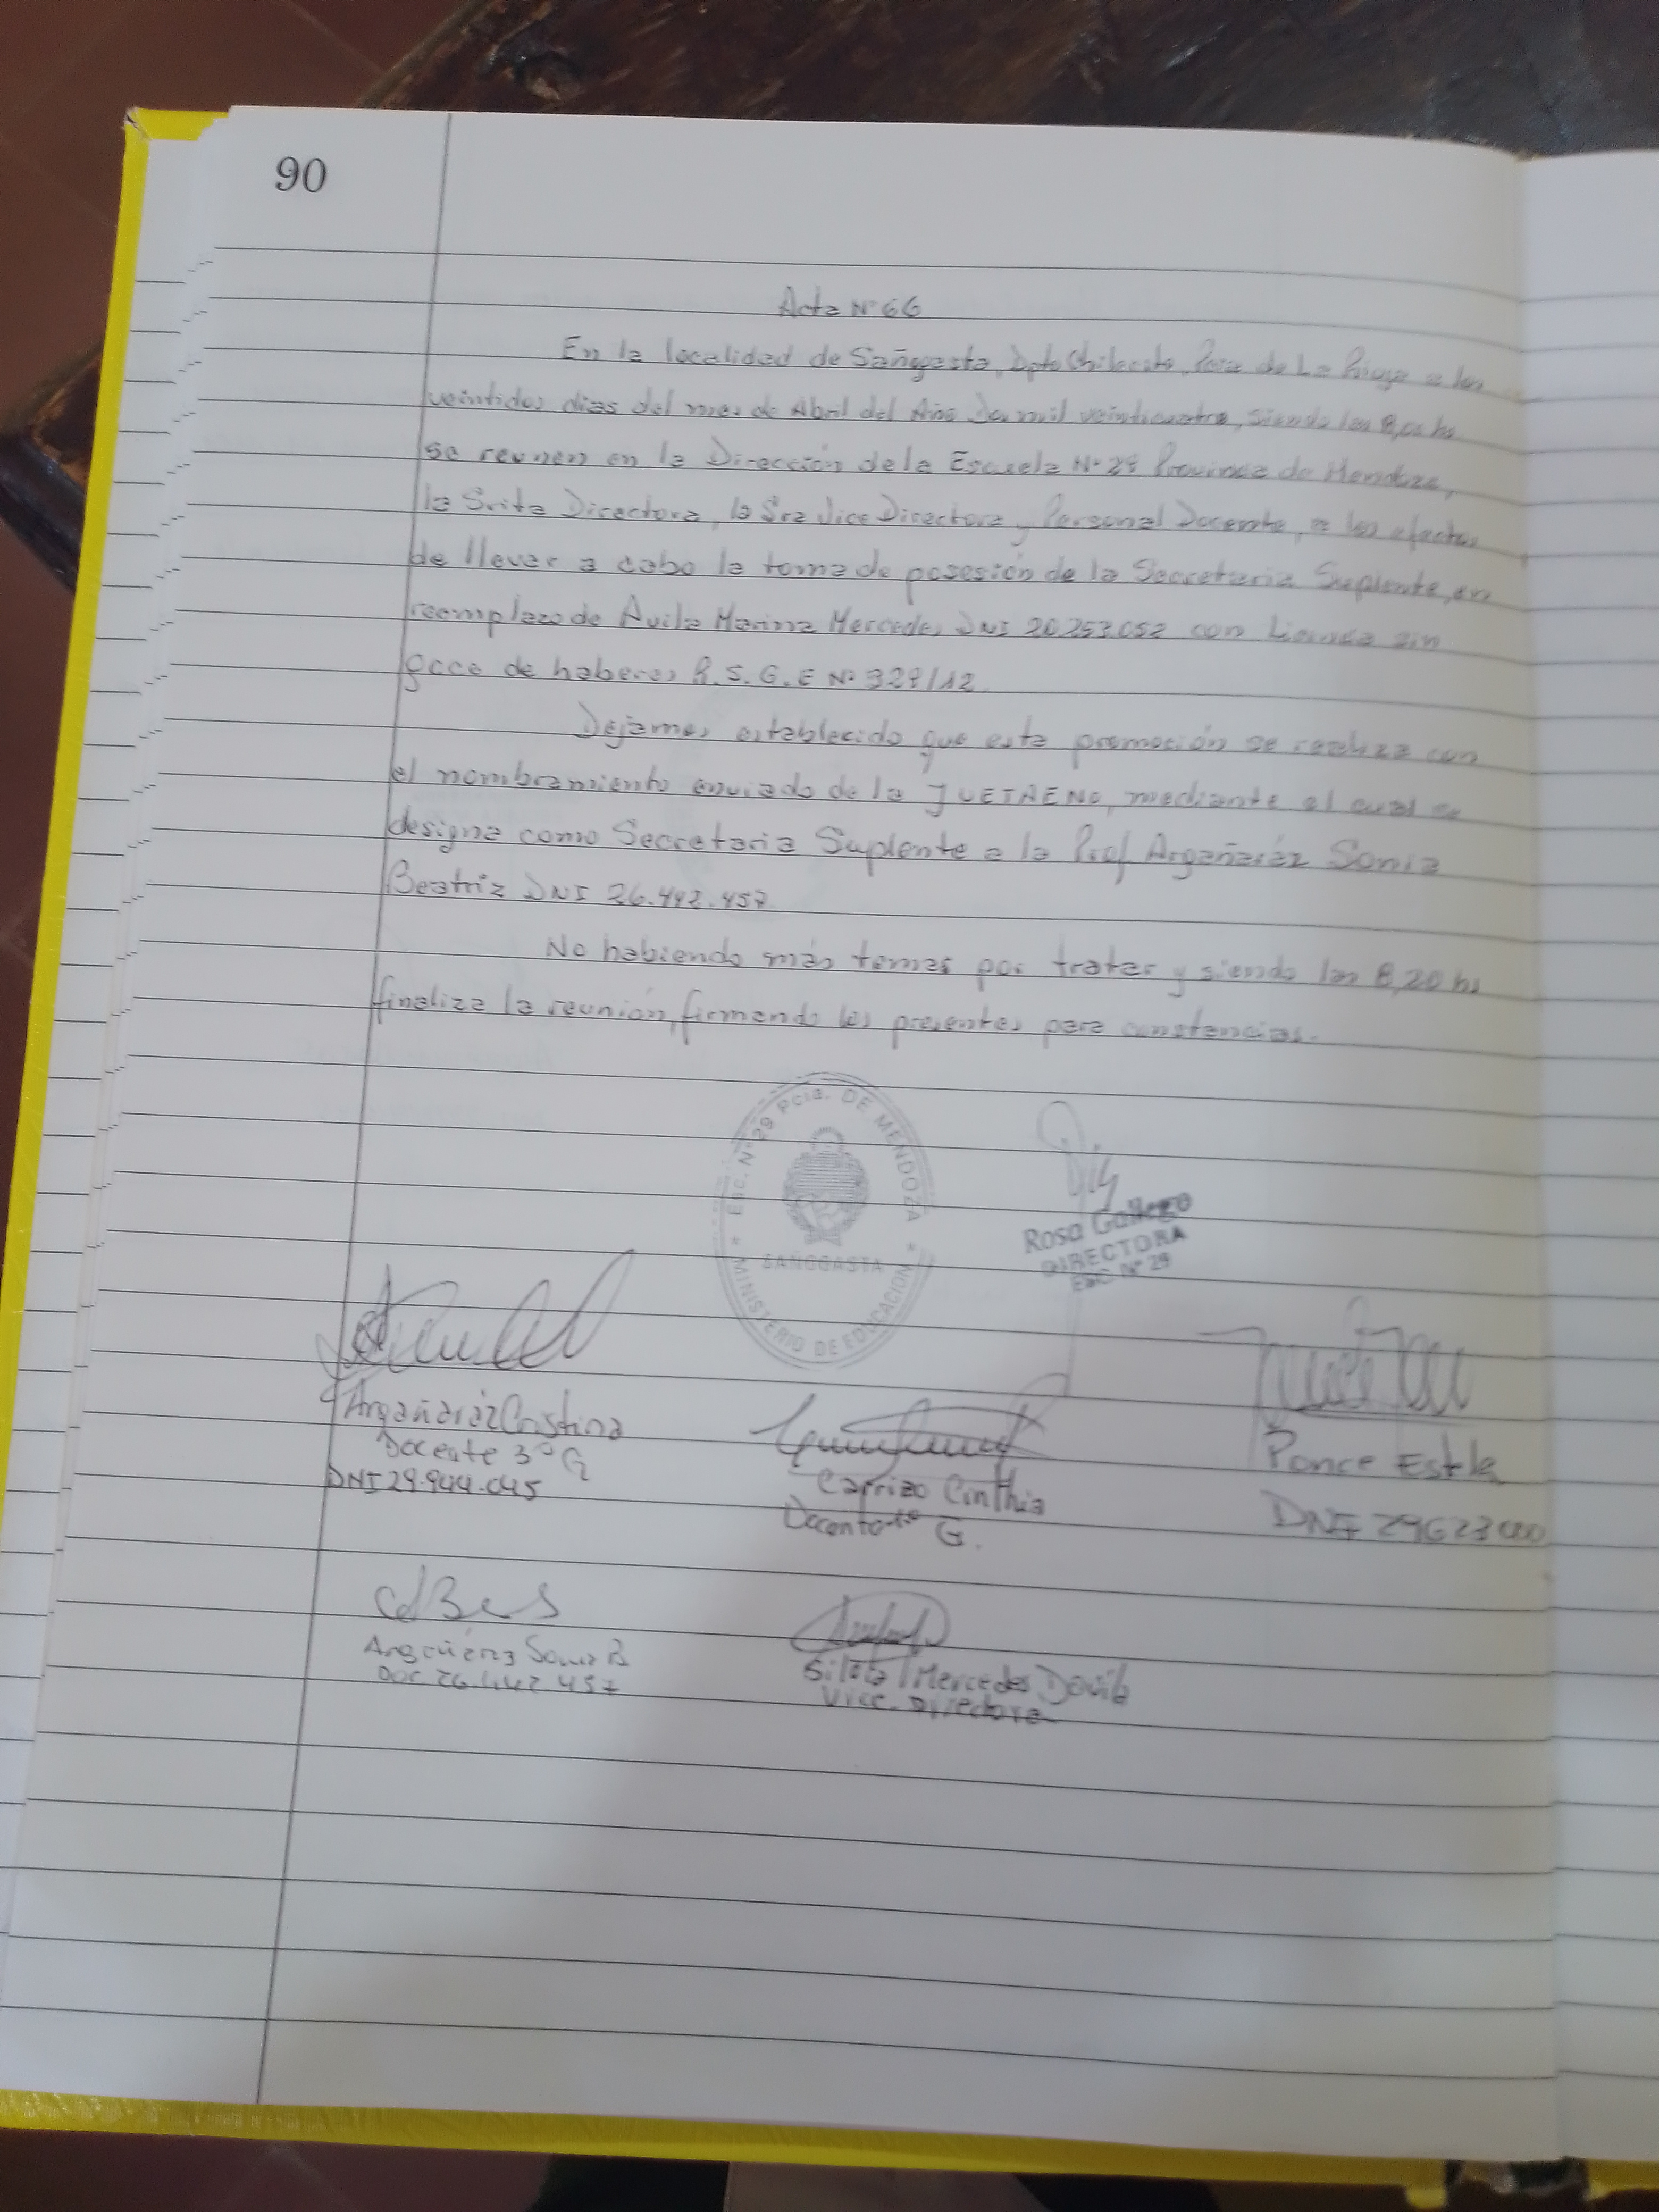 90
Acta N° 66
En la localidad de Sañogasta, Dpto Chilecito, Pcia de La Rioja a los
veintidos dias del mes de Abril del Año Dos mil veinticuatro, siendo las 8,00 hs
se reunen en la Dirección de la Escuela N° 29 Provincia de Mendoza,
la Srita Directora, la Sra Vice Directora y Personal Docente, a los efectos
de llevar a cabo la toma de posesión de la Secretaria Suplente, en
reemplazo de Avila Marina Mercedes DNI 20.253.052 con Licencia sin
goce de haberes R.S.G.E N° 329/12
Dejamos establecido que esta promoción se realiza con
el nombramiento enviado de la JUETAENO, mediante el cual se
designa como Secretaria Suplente a la Prof Argañaráz Sonia
Beatriz DNI 26.442.457
No habiendo más temas por tratar y siendo las 8,20 hs
finaliza la reunión, firmando los presentes para constancias.
Esc. N° 29 Pcia. DE MENDOZA
SAÑOGASTA
MINISTERIO DE EDUCACION
Rosa Gallego
DIRECTORA
ESC. N° 29
Argañaráz Cristina
Docente 3° G
DNI 29.944.045
Carrizo Cinthia
Docente G.
Ponce Estela
DNI
Argañaráz Sonia B
DOC. 26.442.457
Mercedes Davila
Vice-Directora